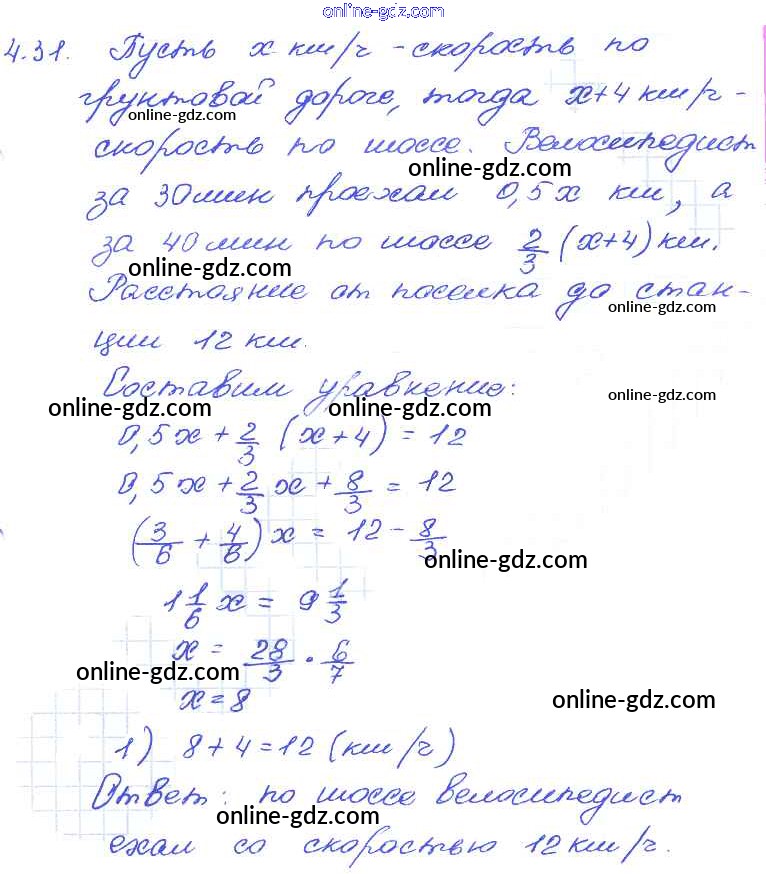 online-gdz.com
4.31. Пусть x км/ч - скорость по
грунтовой дороге, тогда x+4 км/ч -
online-gdz.com
скорость по шоссе. Велосипедист
online-gdz.com
за 30 мин проехал 0,5x км, а
за 40 мин по шоссе 2/3 (x+4) км.
online-gdz.com
Расстояние от поселка до стан-
online-gdz.com
ции 12 км.
Составим уравнение:
online-gdz.com online-gdz.com online-gdz.com
0,5x + 2/3 (x+4) = 12
0,5x + 2/3 x + 8/3 = 12
(3/6 + 4/6) x = 12 - 8/3
online-gdz.com
1 1/6 x = 9 1/3
x = 28/3 · 6/7
online-gdz.com
x = 8
online-gdz.com
1) 8+4=12 (км/ч)
Ответ: по шоссе велосипедист
online-gdz.com online-gdz.com
ехал со скоростью 12 км/ч.